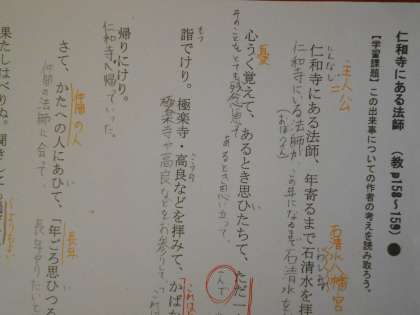 仁和寺にある法師 (教p158~159)●
【学習課題】この出来事についての作者の考えを読み取ろう。
主人公
石清水八幡宮
にんなじ
仁和寺にある法師、年寄るまで石清水を拝
仁和寺にいる法師が、この年になるまで石清水を
(お坊さん)
心うく覚えて、あるとき思ひたちて、ただ一
そのことをとても残念に思って
あるとき思い立って、
詣でけり。極楽寺・高良などを拝みて、かばか
極楽寺や高良などをお参りして
帰りにけり。
仁和寺へ帰っていった。
仲間の人
さて、かたへの人にあひて、「年ごろ思ひつる
仲間の法師に会って
長年
果たしはべりぬ。聞きし